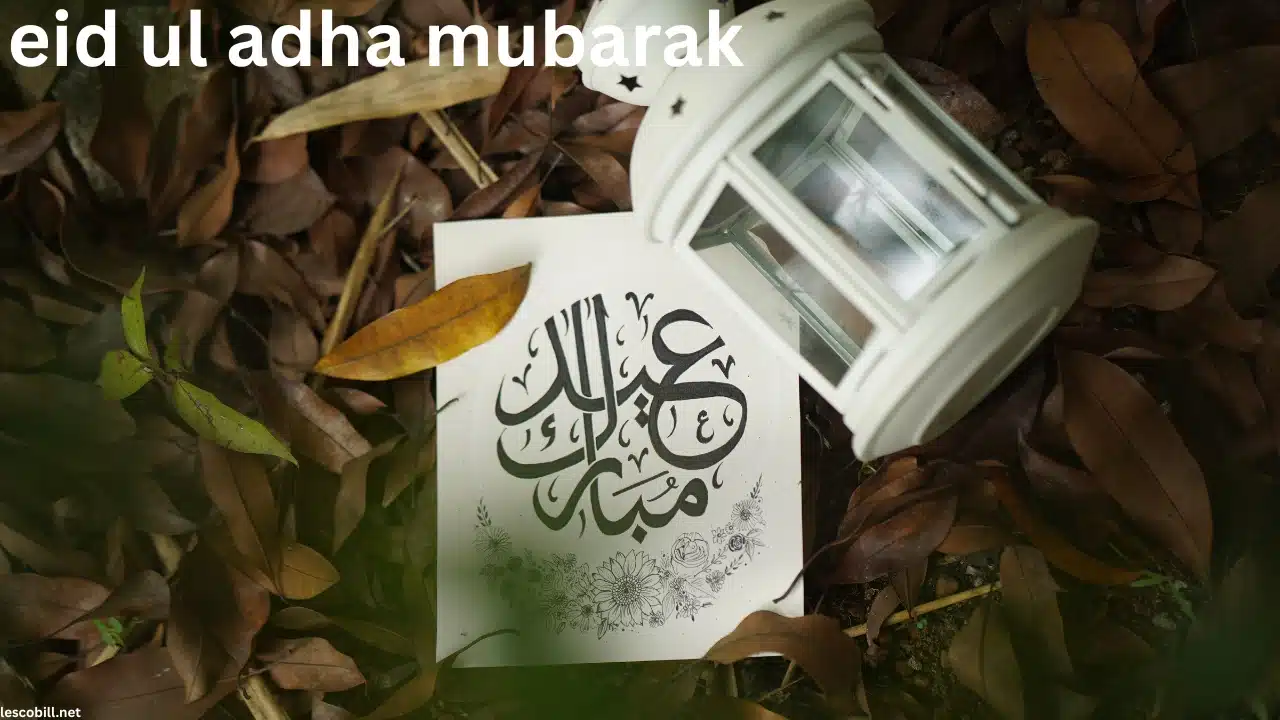 eid ul adha mubarak
عيد
مبارك
lescobill.net